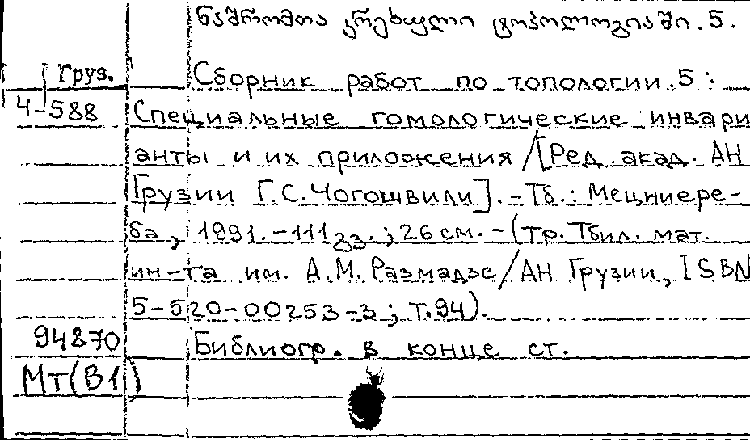 ნაშრომთა კრებული ტოპოლოგიაში. 5.
Груз.
Сборник работ по топологии. 5 :
4-588
Специальные гомологические инвари
анты и их приложения /[Ред. акад. АН
Грузии Г.С.Чогошвили]. -Тб. : Мецниере-
ба, 1991. -111გვ. ; 26 см. - (Тр. Тбил. мат.
ин-та им. А.М. Размадзе/АН Грузии, ISBN
5-520-00253-3 ; т.94).
94870
Библиогр. в конце ст.
Мт(В1)